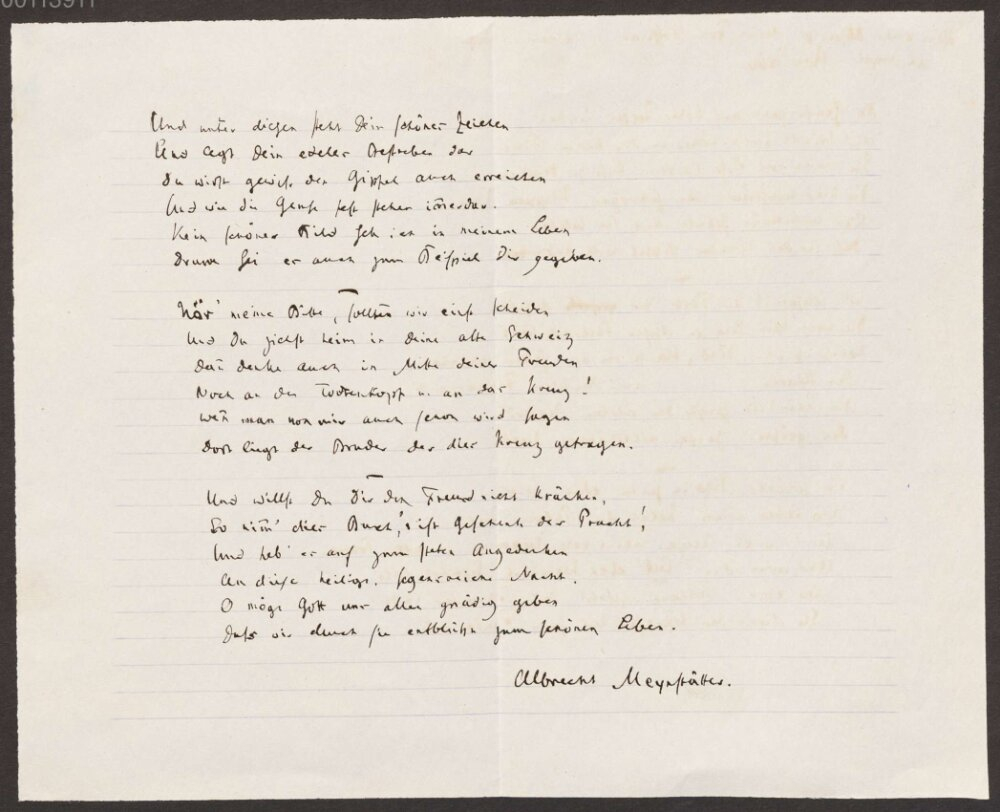 00113911
Und unter diesen steht Dein schönes Zeichen
Und legt Dein edeles Bestreben dar
Du wirst gewiss den Gipfel auch erreichen
Und wie die fest stehen im̄erdar.
Kein schöner Bild seh ich in meinem Leben
Drum sei es auch zum Beispiel Dir gegeben.
Hör' meine Bitte, sollten wir einst scheiden
Und Du ziehst heim in deine alte Schweiz
Dan̄ denke auch in Mitte deiner Freuden
Noch an den Todtenkopf u. an das Kreuz!
Wen̄ man von mir auch schon wird sagen
Dort liegt der Bruder der dies Kreuz getragen.
Und willst du Dir den Freund nicht kränken,
So nim̄' dies Buch, 's ist Geschenk der Pracht!
Und heb' es auf zum steten Angedenken
An diese heilige, segensreiche Nacht.
O möge Gott uns allen gnädig geben
Dass wir durch sie entblühn zum schönen Leben.
Albrecht Meynstätter.